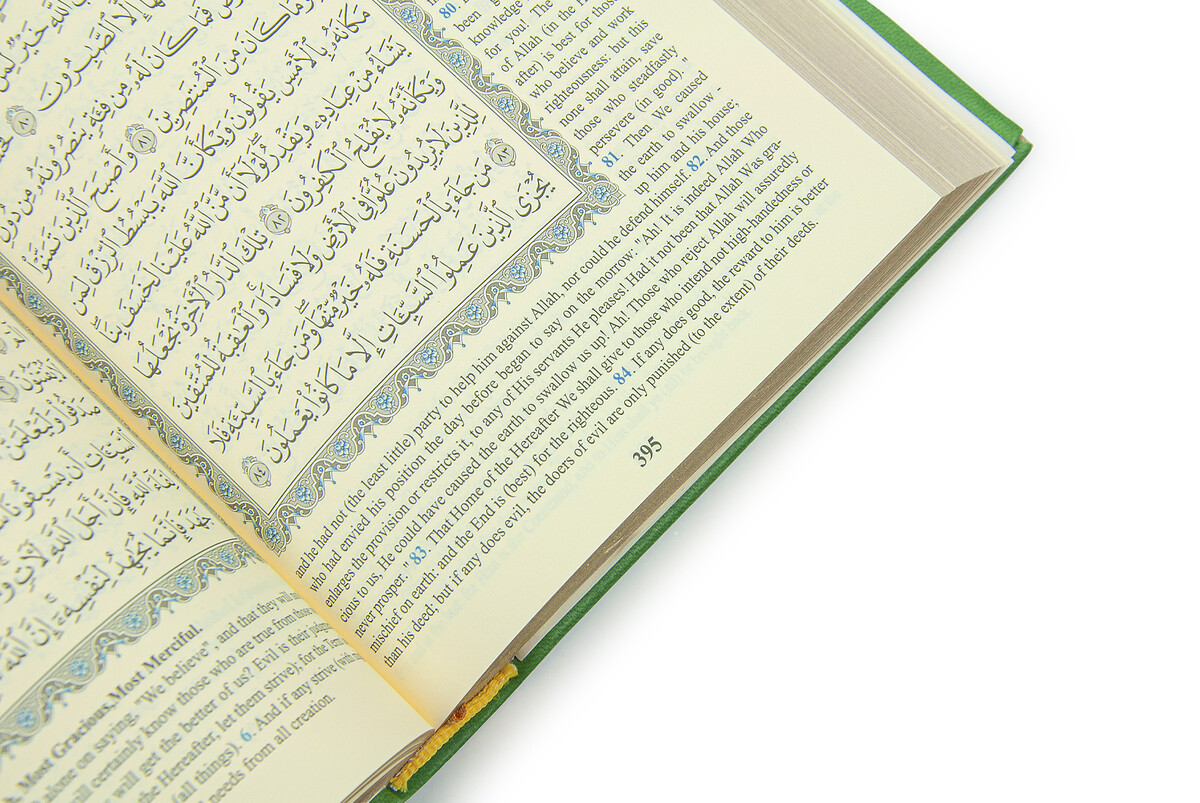 ٱللَّهِ خَيْرٌ لِّمَنْ
إِلَّا ٱلصَّٰبِرُونَ ٨٠
فَمَا كَانَ لَهُۥ مِن فِئَةٍ يَنصُرُونَهُۥ مِن دُونِ
وَمَا كَانَ مِنَ ٱلْمُنتَصِرِينَ ٨١ وَأَصْبَحَ ٱلَّذِينَ تَمَنَّوْا۟
مَكَانَهُۥ بِٱلْأَمْسِ يَقُولُونَ وَيْكَأَنَّ ٱللَّهَ يَبْسُطُ ٱلرِّزْقَ لِمَن
يَشَآءُ مِنْ عِبَادِهِۦ وَيَقْدِرُ لَوْلَآ أَن مَّنَّ ٱللَّهُ عَلَيْنَا لَخَسَفَ بِنَا
وَيْكَأَنَّهُۥ لَا يُفْلِحُ ٱلْكَٰفِرُونَ ٨٢ تِلْكَ ٱلدَّارُ ٱلْءَاخِرَةُ نَجْعَلُهَا
لِلَّذِينَ لَا يُرِيدُونَ عُلُوًّا فِى ٱلْأَرْضِ وَلَا فَسَادًا وَٱلْعَٰقِبَةُ لِلْمُتَّقِينَ
٨٣ مَن جَآءَ بِٱلْحَسَنَةِ فَلَهُۥ خَيْرٌ مِّنْهَا وَمَن جَآءَ بِٱلسَّيِّئَةِ فَلَا
يُجْزَى ٱلَّذِينَ عَمِلُوا۟ ٱلسَّيِّـَٔاتِ إِلَّا مَا كَانُوا۟ يَعْمَلُونَ ٨٤
80
been
knowledge
for you! The
of Allah (in the
after) is best for those
who believe and work
righteousness: but this
none shall attain, save
those who steadfastly
persevere (in good)."
81. Then We caused
the earth to swallow -
up him and his house;
and he had not (the least little) party to help him against Allah, nor could he defend himself. 82. And those
who had envied his position the day before began to say on the morrow: "Ah! It is indeed Allah Who
enlarges the provision or restricts it, to any of His servants He pleases! Had it not been that Allah was gra-
cious to us, He could have caused the earth to swallow us up! Ah! Those who reject Allah will assuredly
never prosper." 83. That Home of the Hereafter We shall give to those who intend not high-handedness or
mischief on earth: and the End is (best) for the righteous. 84. If any does good, the reward to him is better
than his deed; but if any does evil, the doers of evil are only punished (to the extent) of their deeds.
395
أَجَلَ ٱللَّهِ لَءَاتٍ
يُجَٰهِدُ لِنَفْسِهِۦٓ إِنَّ ٱللَّهَ
Most Gracious, Most Merciful.
alone on saying, "We believe", and that they will
will certainly know those who are true from those
will get the better of us? Evil is their
the Hereafter, let them strive); for the Term
(all things). 6. And if any strive (with
needs from all creation.